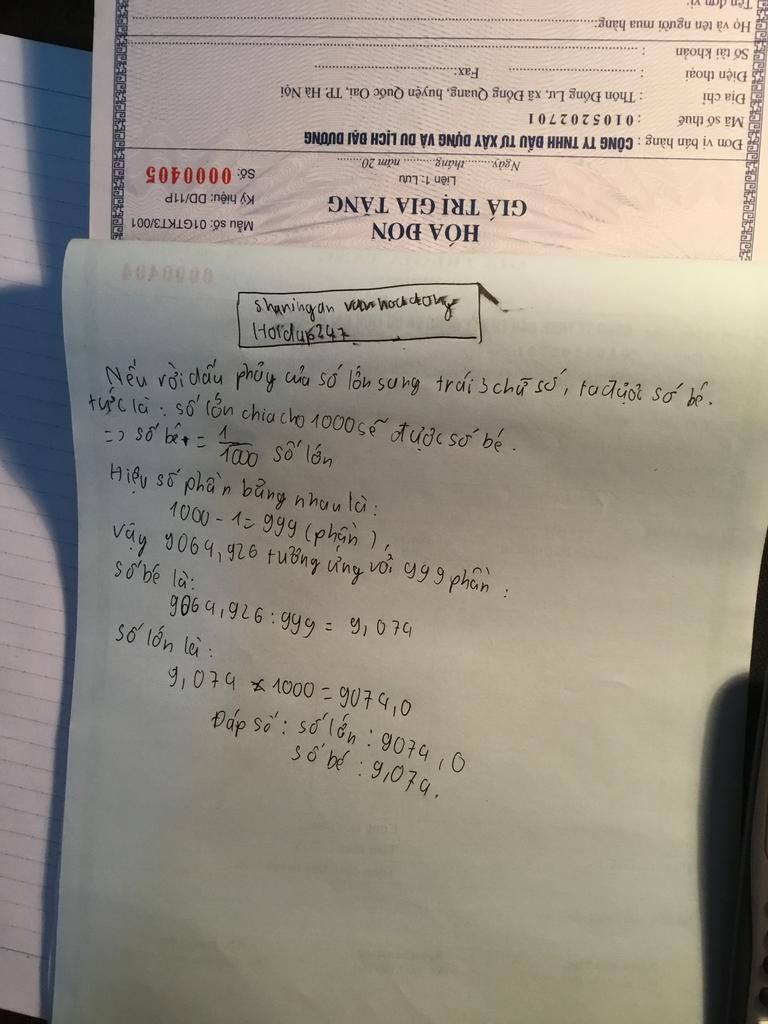 HÓA ĐƠN
GIÁ TRỊ GIA TĂNG
Liên 1: Lưu
Ngày........tháng........năm 20......
Mẫu số: 01GTKT3/001
Ký hiệu: DD/11P
Số: 0000405
Đơn vị bán hàng: CÔNG TY TNHH ĐẦU TƯ XÂY DỰNG VÀ DU LỊCH ĐẠI DƯƠNG
Mã số thuế : 0105202701
Địa chỉ : Thôn Đồng Lư, xã Đồng Quang, huyện Quốc Oai, TP. Hà Nội
Điện thoại : Fax:
Số tài khoản :
Họ và tên người mua hàng:
Tên đơn vị:
0000404
Sharingan
Hoidap247
Nếu rời dấu phẩy của số lớn sang trái 3 chữ số, ta được số bé.
tức là: số lớn chia cho 1000 sẽ được số bé.
=> số bé = 1/1000 số lớn
Hiệu số phần bằng nhau là:
1000 - 1 = 999 (phần),
Vậy 9064,926 tương ứng với 999 phần.
Số bé là:
9064,926 : 999 = 9,074
Số lớn là:
9,074 x 1000 = 9074,0
Đáp số: số lớn: 9074,0
số bé: 9,074.